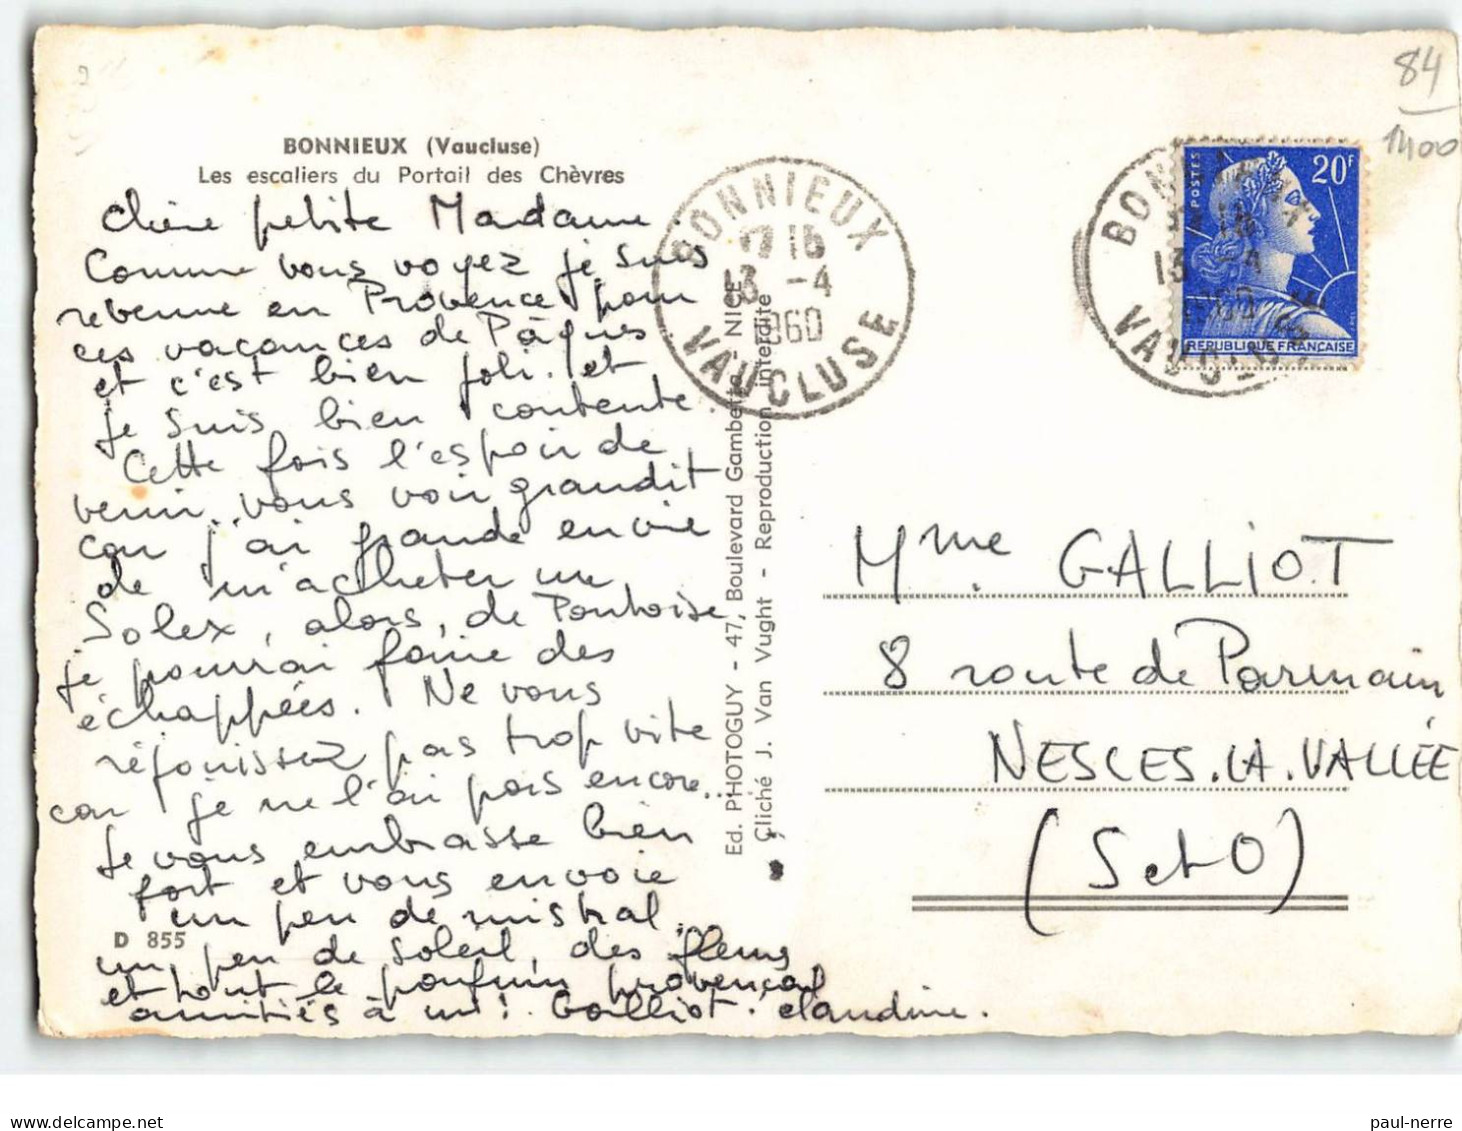 BONNIEUX (Vaucluse)
Les escaliers du Portail des Chèvres
Chère petite Madame.
Comme vous voyez je suis
revenue en Provence pour
ces vacances de Pâques
et c'est bien joli. et
je suis bien contente.
Cette fois l'espoir de
venir vous voir grandit
car j'ai grande envie
de m'acheter un
Solex, alors, de Pontoise
je pourrai faire des
échappées. Ne vous
réjouissez pas trop vite
car je ne l'ai pas encore...
Je vous embrasse bien
fort et vous envoie
un peu de mistral.
un peu de soleil, des fleurs
et tout le parfum provençal
amitiés à Mr! Galliot. Claudine.
D 855
Ed. PHOTOGUY - 47, Boulevard Gambetta, NICE
Cliché J. Van Vught - Reproduction interdite
BONNIEUX
13 -4
1960
VAUCLUSE
BONNIEUX
16
13 -4
1960
VAUCLUSE
POSTES
20F
REPUBLIQUE FRANÇAISE
84
1400
Mme. GALLIOT
8 route de Parmain
NESLES.LA.VALLÉE
(S et O)
paul-nerre